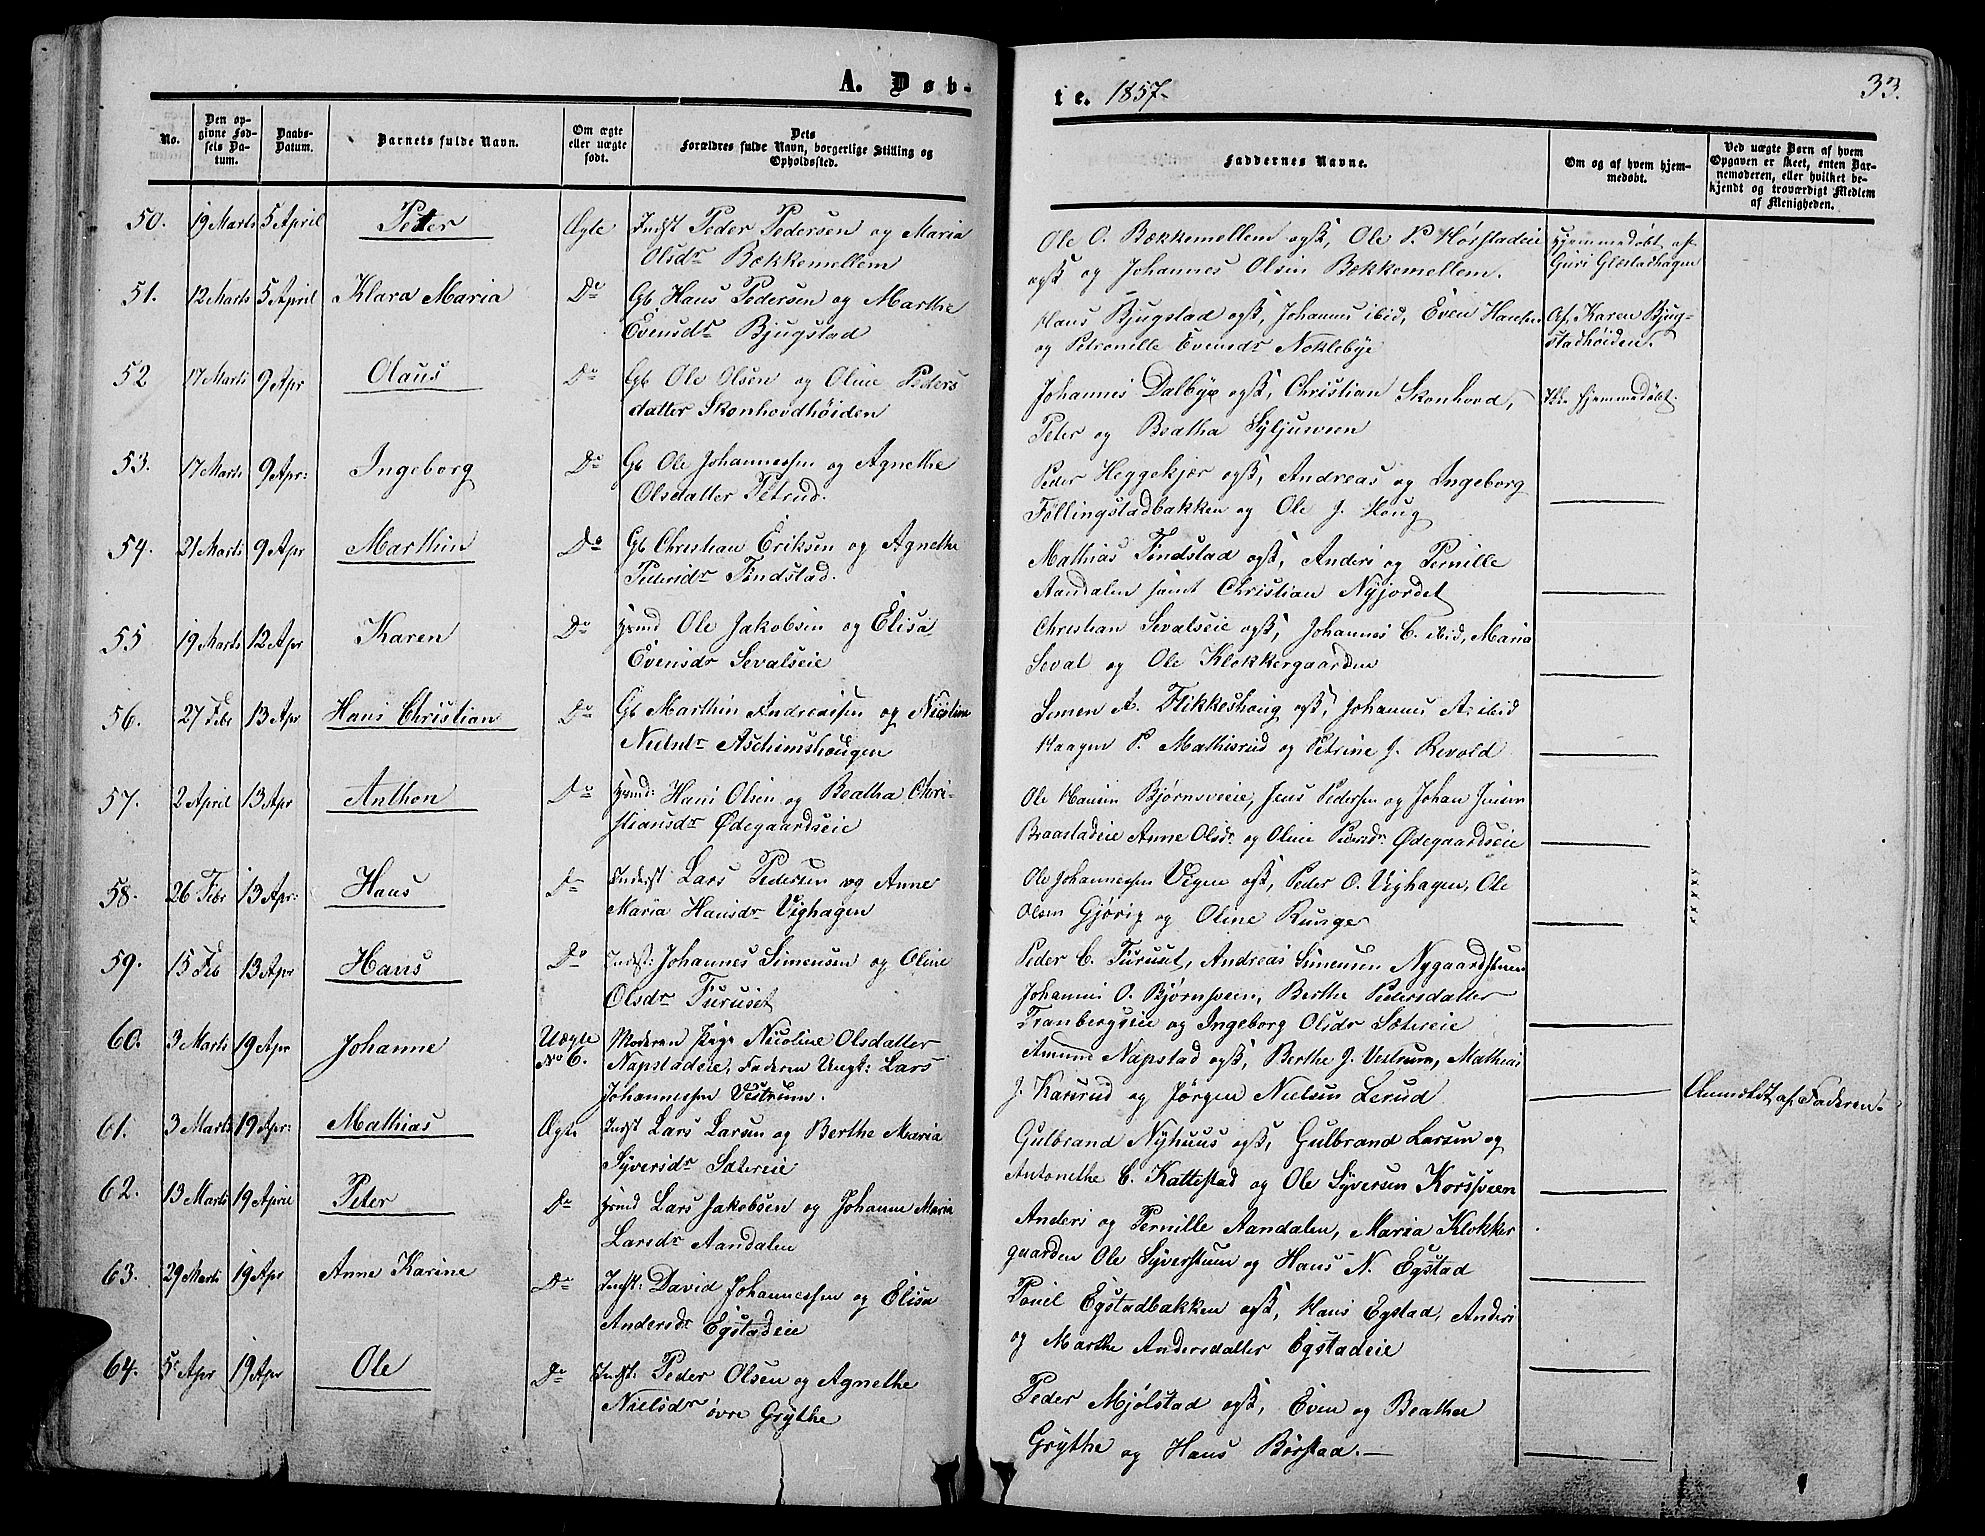 A. Døb-
No.
Den op-
givne Fød-
sels Da-
tum.
Daabs-
Datum.
Barnets fulde Navn.
Om ægte
eller uægte
født.
Dets
Forældres fulde Navn, borgerlige Stilling og
Opholdssted.
50. 19 Marts 5 April Peter Ægte Indst Peder Pedersen og Maria
Olsdr Bækkemellem
51. 12 Marts 5 April Klara Maria Do Gb Hans Pedersen og Marthe
Evensdr Bjugstad
52 17 Marts 9 Apr Olaus Do Gb Ole Olsen og Oline Peders
datter Skonhovdhøiden
53. 17 Marts 9 Apr: Ingeborg Do Gb Ole Johannessen og Agnethe
Olsdatter Tetrud.
54. 21 Marts 9 Apr Marthin Do Gb Christian Eriksen og Agnethe
Pedersdr Tøndstad.
55 19 Marts 12 Apr Karen Do Hsmd Ole Jakobsen og Elisa
Evensdr Sevalseie
56. 27 Febr 13 Apr Hans Christian Do Gb Marthin Andreassen og Nicoline
Nielsdr Aschimshougen
57. 2 April 13 Apr Anthon Do Hsmd: Hans Olsen og Beatha Chri-
stiansdr Ødegaardseie
58. 26 Febr 13 Apr: Hans Do Inderst Lars Pedersen og Anne
Maria Hansdr Vighagen
59. 15 Feb 13 Apr Hans Do Indst: Johannes Simensen og Oline
Olsdr Furuset
60. 3 Marts 19 Apr Johanne Uægte Moderen Pige Nicoline Olsdatter
No 6. Napstadeie, Faderen Ungk: Lars
Johannessen Vestrum.
61. 3 Marts 19 Apr: Mathias Ægte Indst Lars Larsen og Berthe Maria
Syversdr Sætereie
62. 13 Marts 19 April Peter Do Hsmd Lars Jakobsen og Johanne Maria
Larsdr Aandalen
63. 29 Marts 19 Apr Anne Karine Do Indst: David Johannessen og Elisa
Andersdr Egstadeie
64. 5 Apr 19 Apr Ole Do Indst: Peder Olsen og Agnethe
Nielsdr øvre Grythe
te. 1857.
33.
Faddernes Navne.
Om og af hvem hjem-
medøbt.
Ved uægte Børn af hvem
Opgaven er skeet, enten Bar-
nemoderen, eller hvilket be-
kjendt og troværdigt Medlem
af Menigheden.
Ole O. Bækkemellem ogsß, Ole P. Hørstadeie Hjemmedøbt af
ogsß og Johannes Olsen Bækkemellem. Guri Gløstadhagen
Hans Bjugstad ogsß, Johannes ibid, Even Hansen Af Karen Bjug-
og Petronille Evensdr Noklebye stadhøiden.
Johannes Dalbye ogsß, Christian Skonhovd, Ikke hjemmedøbt.
Peter og Beatha Syljuveen
Peder Heggekjær ogsß, Andreas og Ingeborg
Føllingstadbakken og Ole J. Houg
Mathias Tøndstad ogsß, Anders og Pernille
Aandalen samt Christian Nyjordet
Christian Sevalseie ogsß, Johannes C. ibid, Maria
Seval og Ole Klokkergaarden
Simen A. Flikkeshoug ogsß, Johannes A. ibid
Haagen P. Mathisrud og Petrine J. Revold
Ole Hansen Bjørnsveeie, Jens Pedersen og Johan Jensen
Braastadeie Anne Olsdr og Oline Pedersdr Ødegaardseie
Ole Johannessen Vigen ogsß, Peder O. Vighagen, Ole
Olsen Gjøvig og Oline Runger
Peder C. Furuset, Andreas Simensen Nygaardstuen
Johannes O. Bjørnsveen, Berthe Pedersdatter
Tranbergseie og Ingeborg Olsdr Sætereie
Amund Napstad ogsß, Berthe J. Vestrum, Mathias
J. Karsrud og Jørgen Nielsen Lerud Anmeldt af Faderen.
Gulbrand Nyhuus ogsß, Gulbrand Larsen og
Antonethe C. Kattestad og Ole Syversen Korssveen
Anders og Pernille Aandalen, Maria Klokker
gaarden Ole Syverstuen og Hans N. Egstad
Povel Egstadbakken ogsß, Hans Egstad, Anders
og Marthe Andersdatter Egstadeie
Peder Mjølstad ogsß, Even og Beathe
Grythe og Hans Børstad.